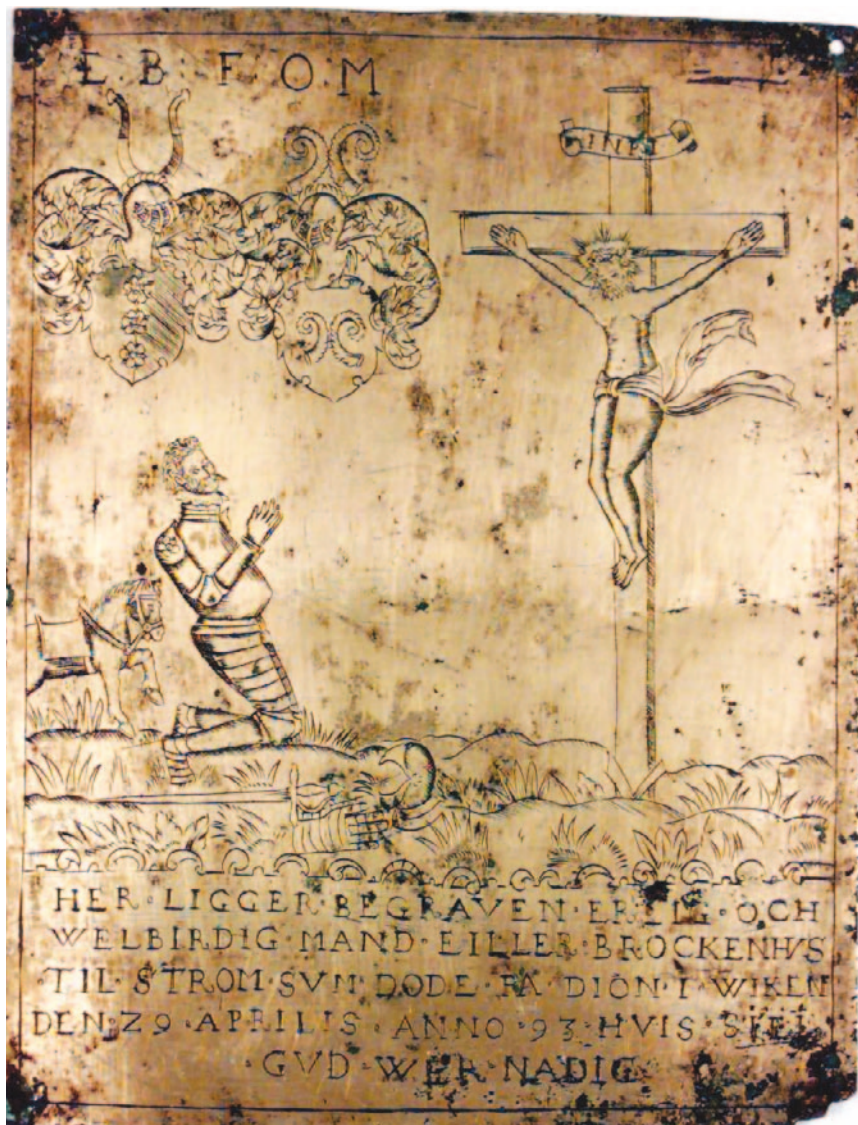 E · B · F · O · M
INRI
HER · LIGGER · BEGRAVEN · ERLIG · OCH
WELBIRDIG · MAND · EILLER · BROCKENHVS
TIL · STROM · SVM · DODE · PA DION · I · WIKEN
DEN · 29 · APRILIS · ANNO · 93 · HVIS · SIEL
· GVD · WER · NADIG